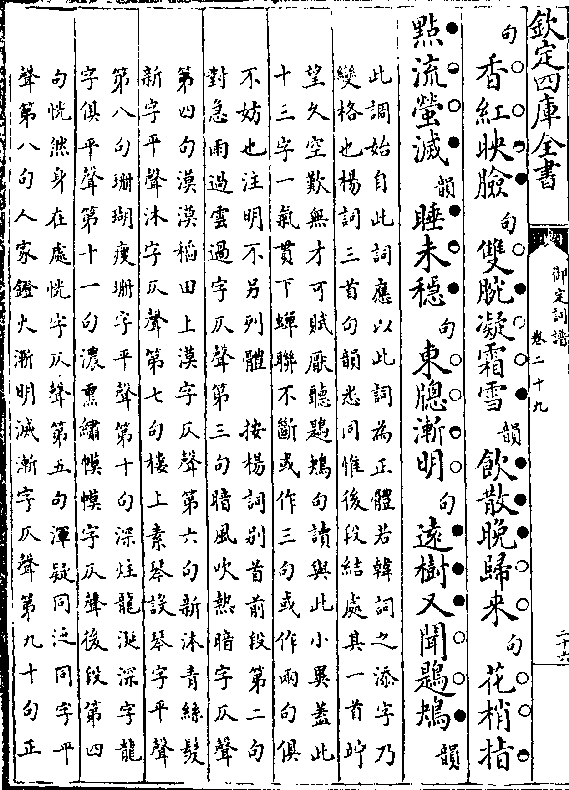 欽定四庫全書
御定詞譜
卷二十九
二十六
句香紅映臉句雙腕凝霜雪韻飲散晚歸來句花梢指
點流螢滅韻睡未穩句東牕漸明句遠樹又聞鶗鴂韻
此調始自此詞應以此詞為正體若韓詞之添字乃
變格也楊詞三首句韻悉同惟後段結處其一首竚
望久空歎無才可賦厭聽鶗鴂句讀與此小異蓋此
十三字一氣貫下蟬聯不斷或作三句或作兩句俱
不妨也注明不另列體　按楊詞别首前段第二句
對急雨過雲過字仄聲第三句暗風吹熱暗字仄聲
第四句漠漠稻田上漠字仄聲第六句新沐青絲髮
新字平聲沐字仄聲第七句樓上素琴設琴字平聲
第八句珊瑚瘦珊字平聲第十句深炷龍涎深字龍
字俱平聲第十一句濃熏繡幙幙字仄聲後段第四
句恍然身在處恍字仄聲第五句渾疑同泛同字平
聲第八句人家鐙火漸明滅漸字仄聲第九十句正